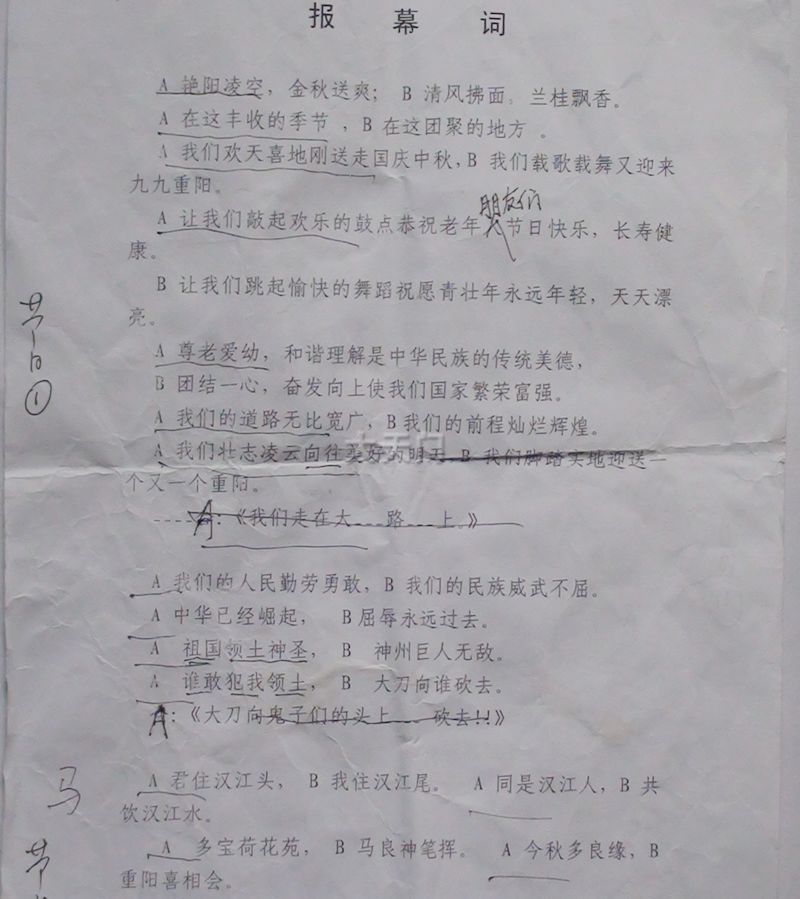 报 幕 词
A 艳阳凌空，金秋送爽； B 清风拂面。兰桂飘香。
A 在这丰收的季节 ，B 在这团聚的地方 。
A 我们欢天喜地刚送走国庆中秋，B 我们载歌载舞又迎来
九九重阳。
朋友们
A 让我们敲起欢乐的鼓点恭祝老年人节日快乐，长寿健
康。
B 让我们跳起愉快的舞蹈祝愿青壮年永远年轻，天天漂
亮。
节目①
A 尊老爱幼，和谐理解是中华民族的传统美德，
B 团结一心，奋发向上使我们国家繁荣富强。
A 我们的道路无比宽广，B 我们的前程灿烂辉煌。
A 我们壮志凌云向往美好的明天 B 我们脚踏实地迎送一
个又一个重阳。
----A：《我们走在大...路...上。》
A 我们的人民勤劳勇敢，B 我们的民族威武不屈。
A 中华已经崛起， B 屈辱永远过去。
A 祖国领土神圣， B 神州巨人无敌。
A 谁敢犯我领土， B 大刀向谁砍去。
A：《大刀向鬼子们的头上...砍去!!》
马
A 君住汉江头， B 我住汉江尾。 A 同是汉江人，B 共
饮汉江水。
节
A 多宝荷花苑， B 马良神笔挥。 A 今秋多良缘，B
重阳喜相会。